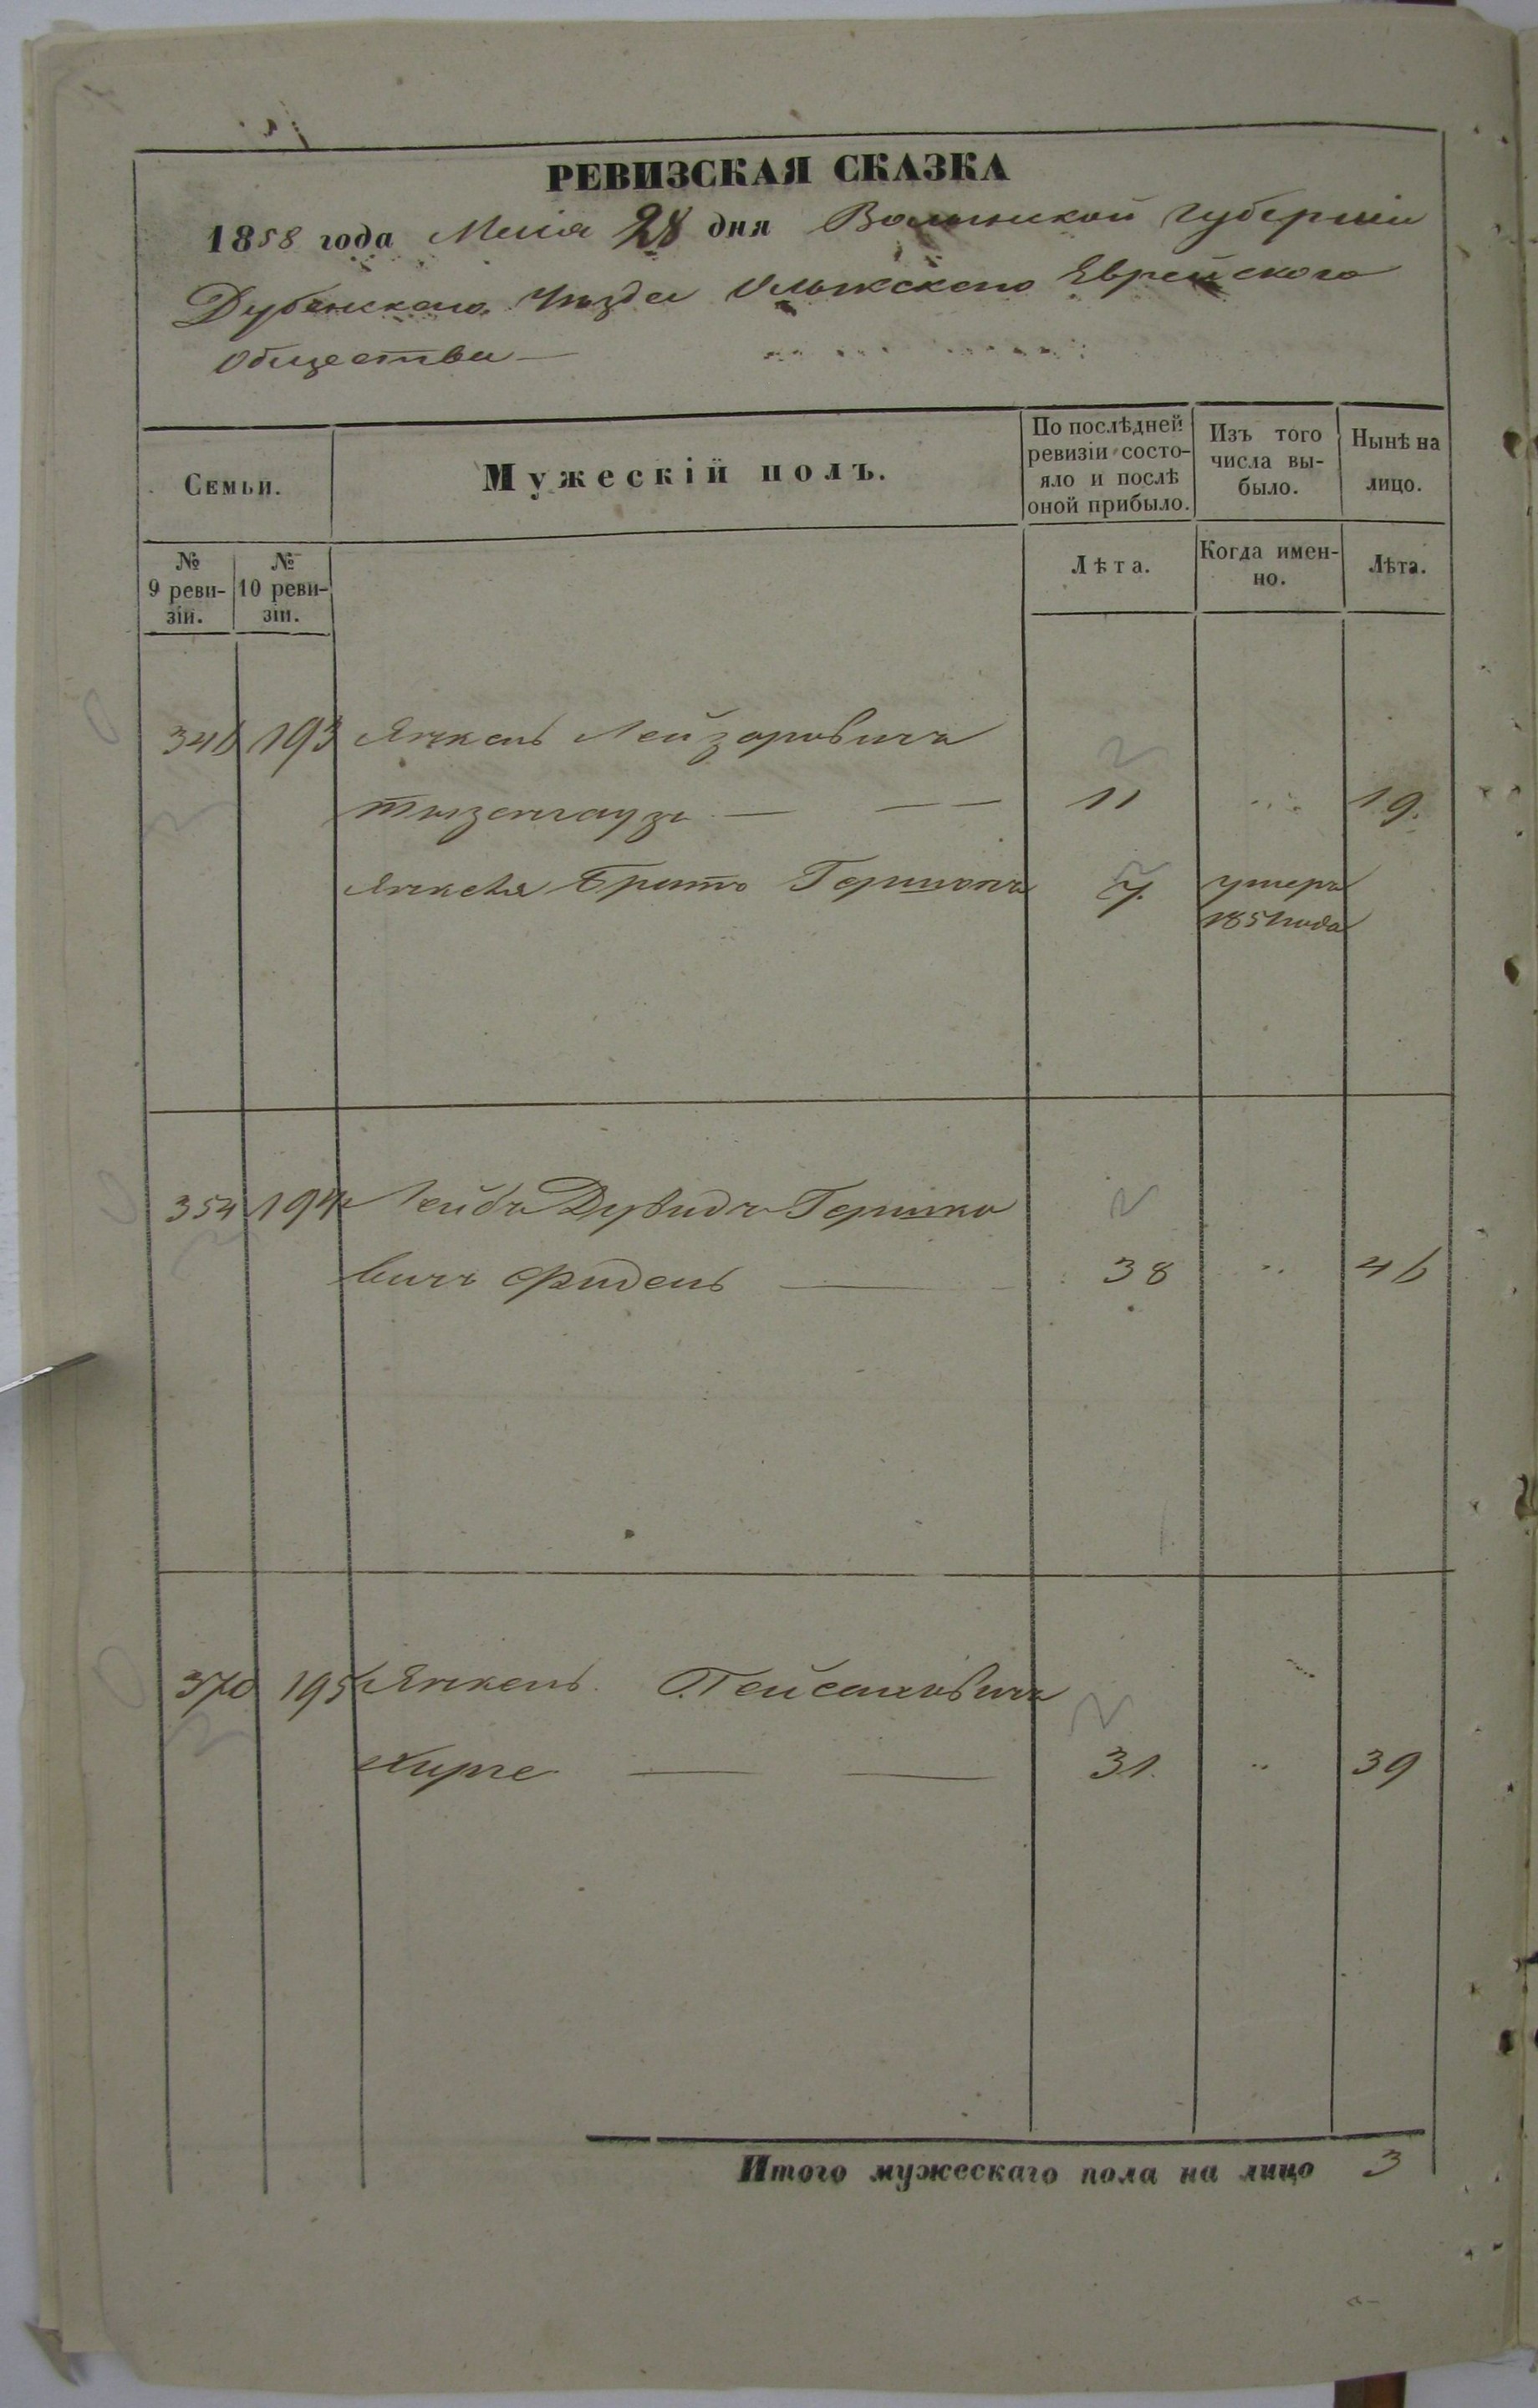 РЕВИЗСКАЯ СКАЗКА
1858 года Маія 28 дня Волынской губерніи
Дубенскаго Уѣзда Олыкскаго Еврейского
Общества
Семьи.
Мужескій полъ.
По послѣдней ревизіи состо-
яло и послѣ
оной прибыло.
Изъ того
числа вы-
было.
Нынѣ на
лицо.
№
9 реви-
зіи.
№
10 реви-
зіи.
Лѣта.
Когда имен-
но.
Лѣта.
346 193 Янкель Лейзоровичъ
Тызенгаузъ 11 19.
Янкеля Братъ Гершонъ 7. умеръ
1851 года
354 194 Лейба Дувидъ Гершко
вичъ Фидель 38 46
370 195 Янкель Пейсаховичъ
31. 39
Итого мужескаго пола на лицо 3